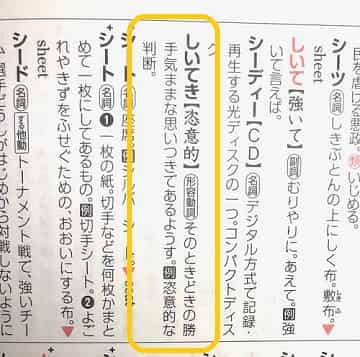 民を虐げる悪政。類いじめる。
シーツ【名詞】しきぶとんの上にしく布。敷布。しきふ
sheet
しいて【強いて】副詞 むりやりに。あえて。例強
いて言えば。
シーディー【CD】名詞 デジタル方式で記録・
再生する光ディスクの一つ。コンパクトディス
ク
しいてき【恣意的】形容動詞 そのときどきの勝
手気ままな思いつきであるようす。例恣意的な
判断。
シート 名詞 座席。例シルバーシート。▼seat
シート 名詞 ❶一枚の紙。切手などを何枚かまと
めて一枚にしてあるもの。例切手シート。❷よご
れやきずをふせぐための、おおいにする布。▼
sheet
シード 名詞 する他動 トーナメント戦で、強いチー
選手どうしがはじめから対戦しないように